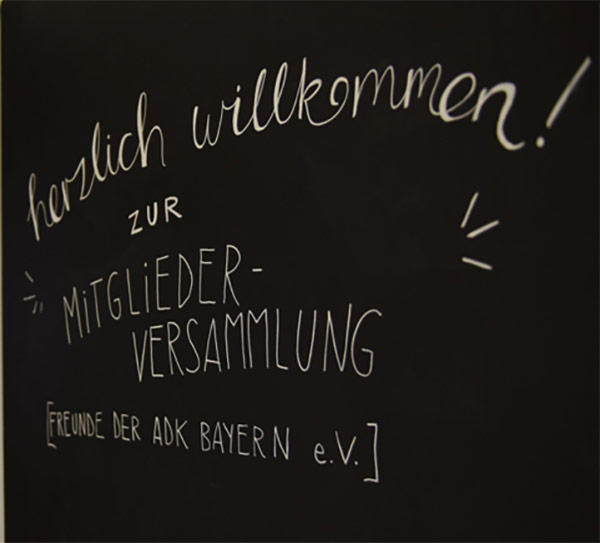 herzlich willkommen!
ZUR
MiTGLiEDER-
VERSAMMLUNG
[FREUNDE DER ADK BAYERN e.V.]